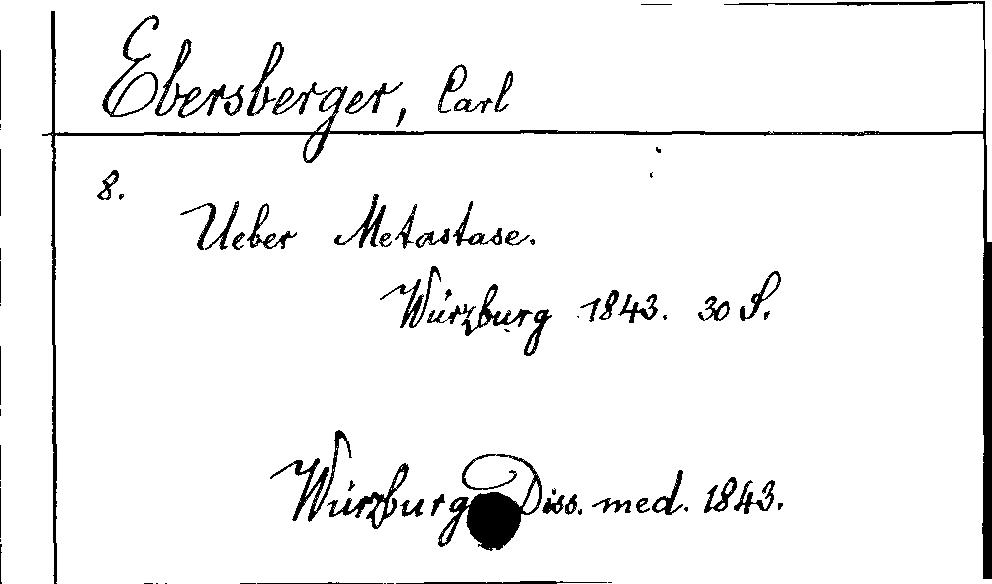 Ebersberger, Carl
8.
Ueber Metastase.
Würzburg 1843. 30 S.
Würzburg Diss. med. 1843.